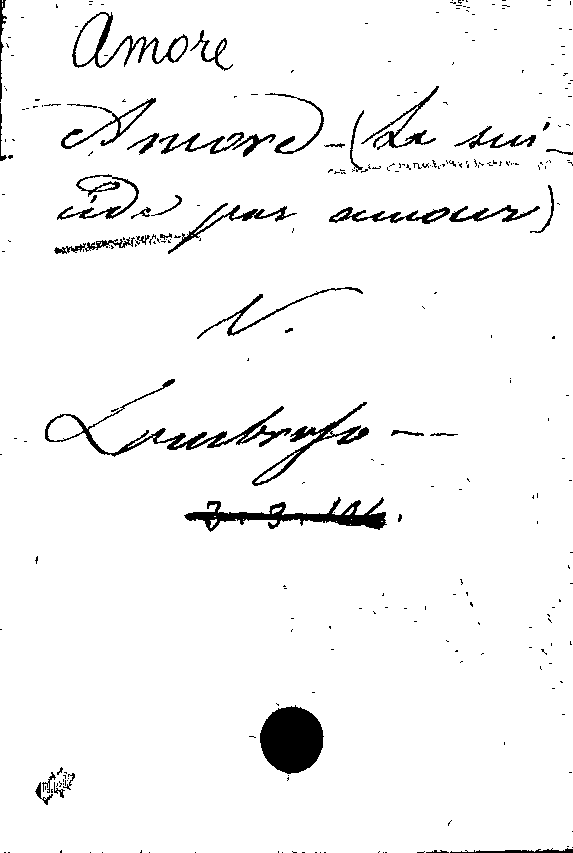 Amore
Amore - (Le sui-
cide par amour)
V.
Lombroso —
3. 3. 104.